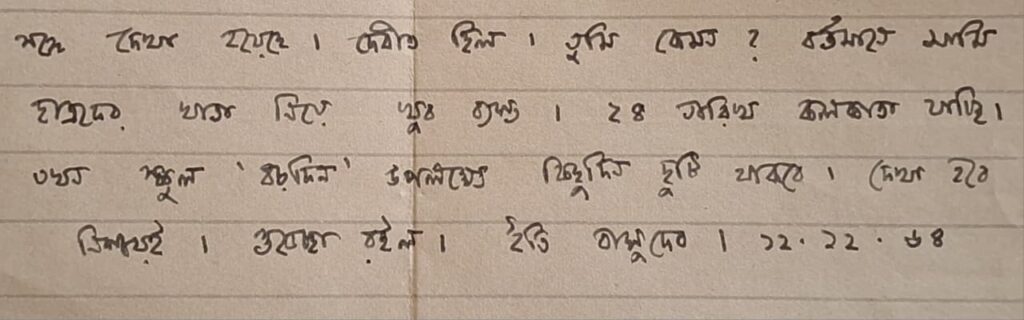 সঙ্গে দেখা হয়েছে। দেবীও ছিল। তুমি কেমন? বর্তমানে আমি
ছাত্রদের খাতা নিয়ে খুব ব্যস্ত। ২৪ তারিখ কলকাতা যাচ্ছি।
তখন স্কুল 'বড়দিন' উপলক্ষ্যে কিছুদিন ছুটি থাকবে। দেখা হবে
নিশ্চয়ই। শুভেচ্ছা রইল। ইতি বাসুদেব। ১২.১২.৬৪